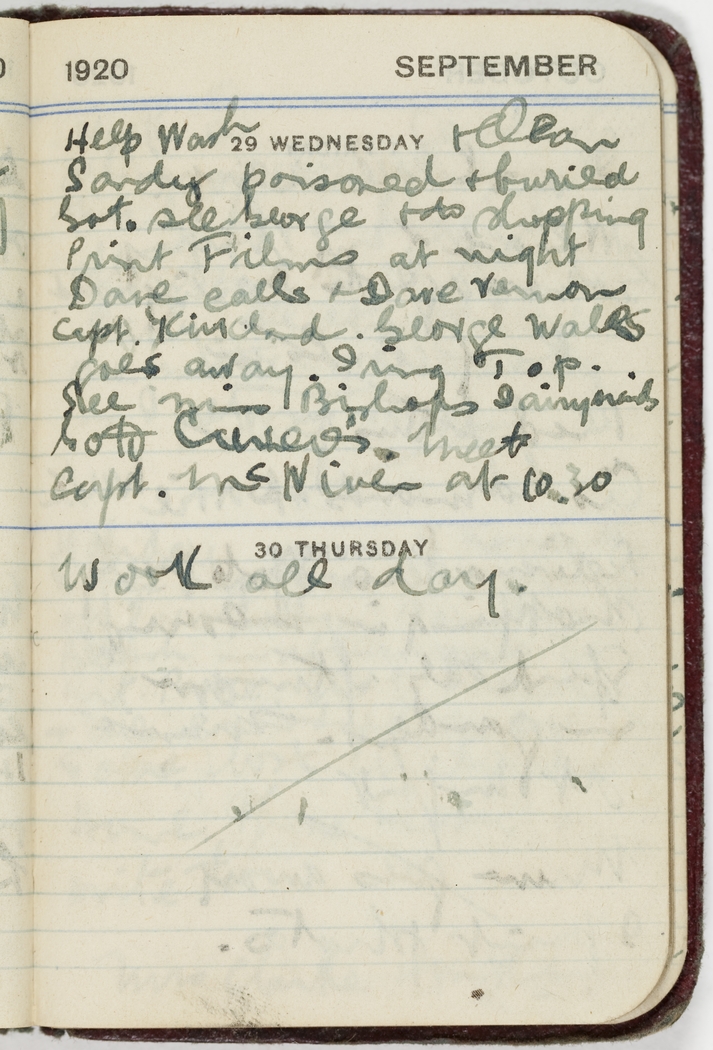 1920 SEPTEMBER
Help Wash 29 WEDNESDAY + Clean
Sandy poisoned + buried
Bot. see George + do shopping
Print Films at night
Dave calls + Dave Vernon
Capt. Kinkead. George Wales
goes away. Ring T.o.p.
See Miss Bishops Dairymaids
Meet
Capt. McNiven at 10.30
30 THURSDAY
Work all day.